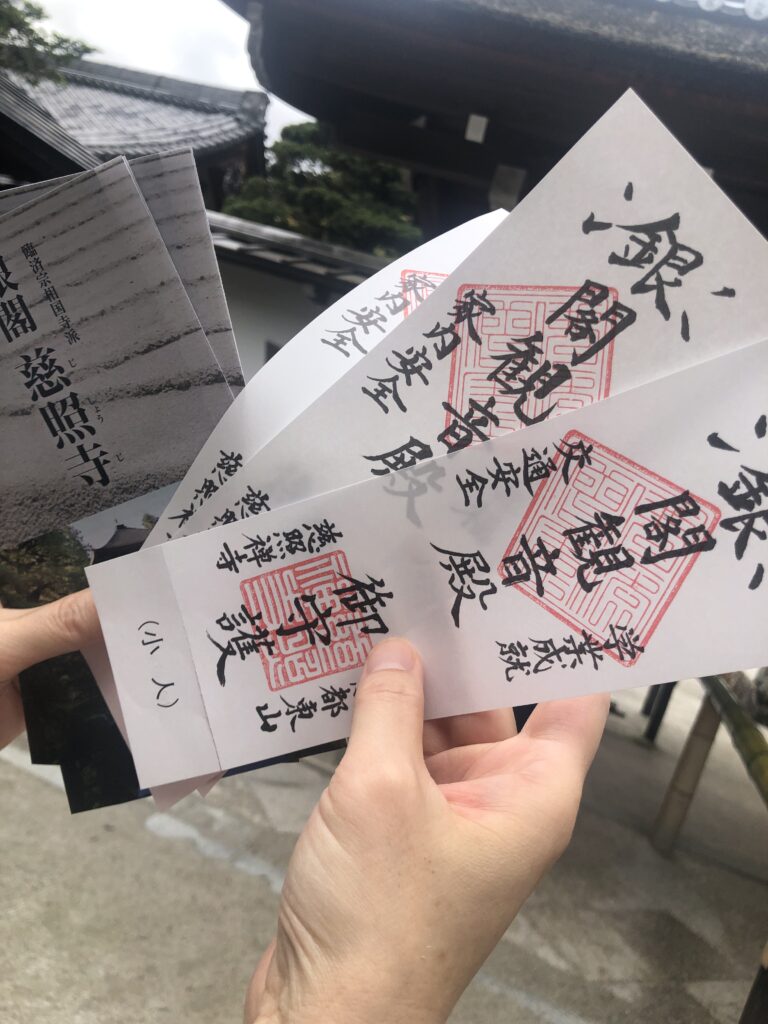 臨済宗相国寺派
閣 慈照寺
じ しょう じ
家内安全
慈照
銀閣観音殿
家内安全
慈照
銀閣観音殿
交通安全
学業成就
御守護
慈照禅寺
都東山
(小人)